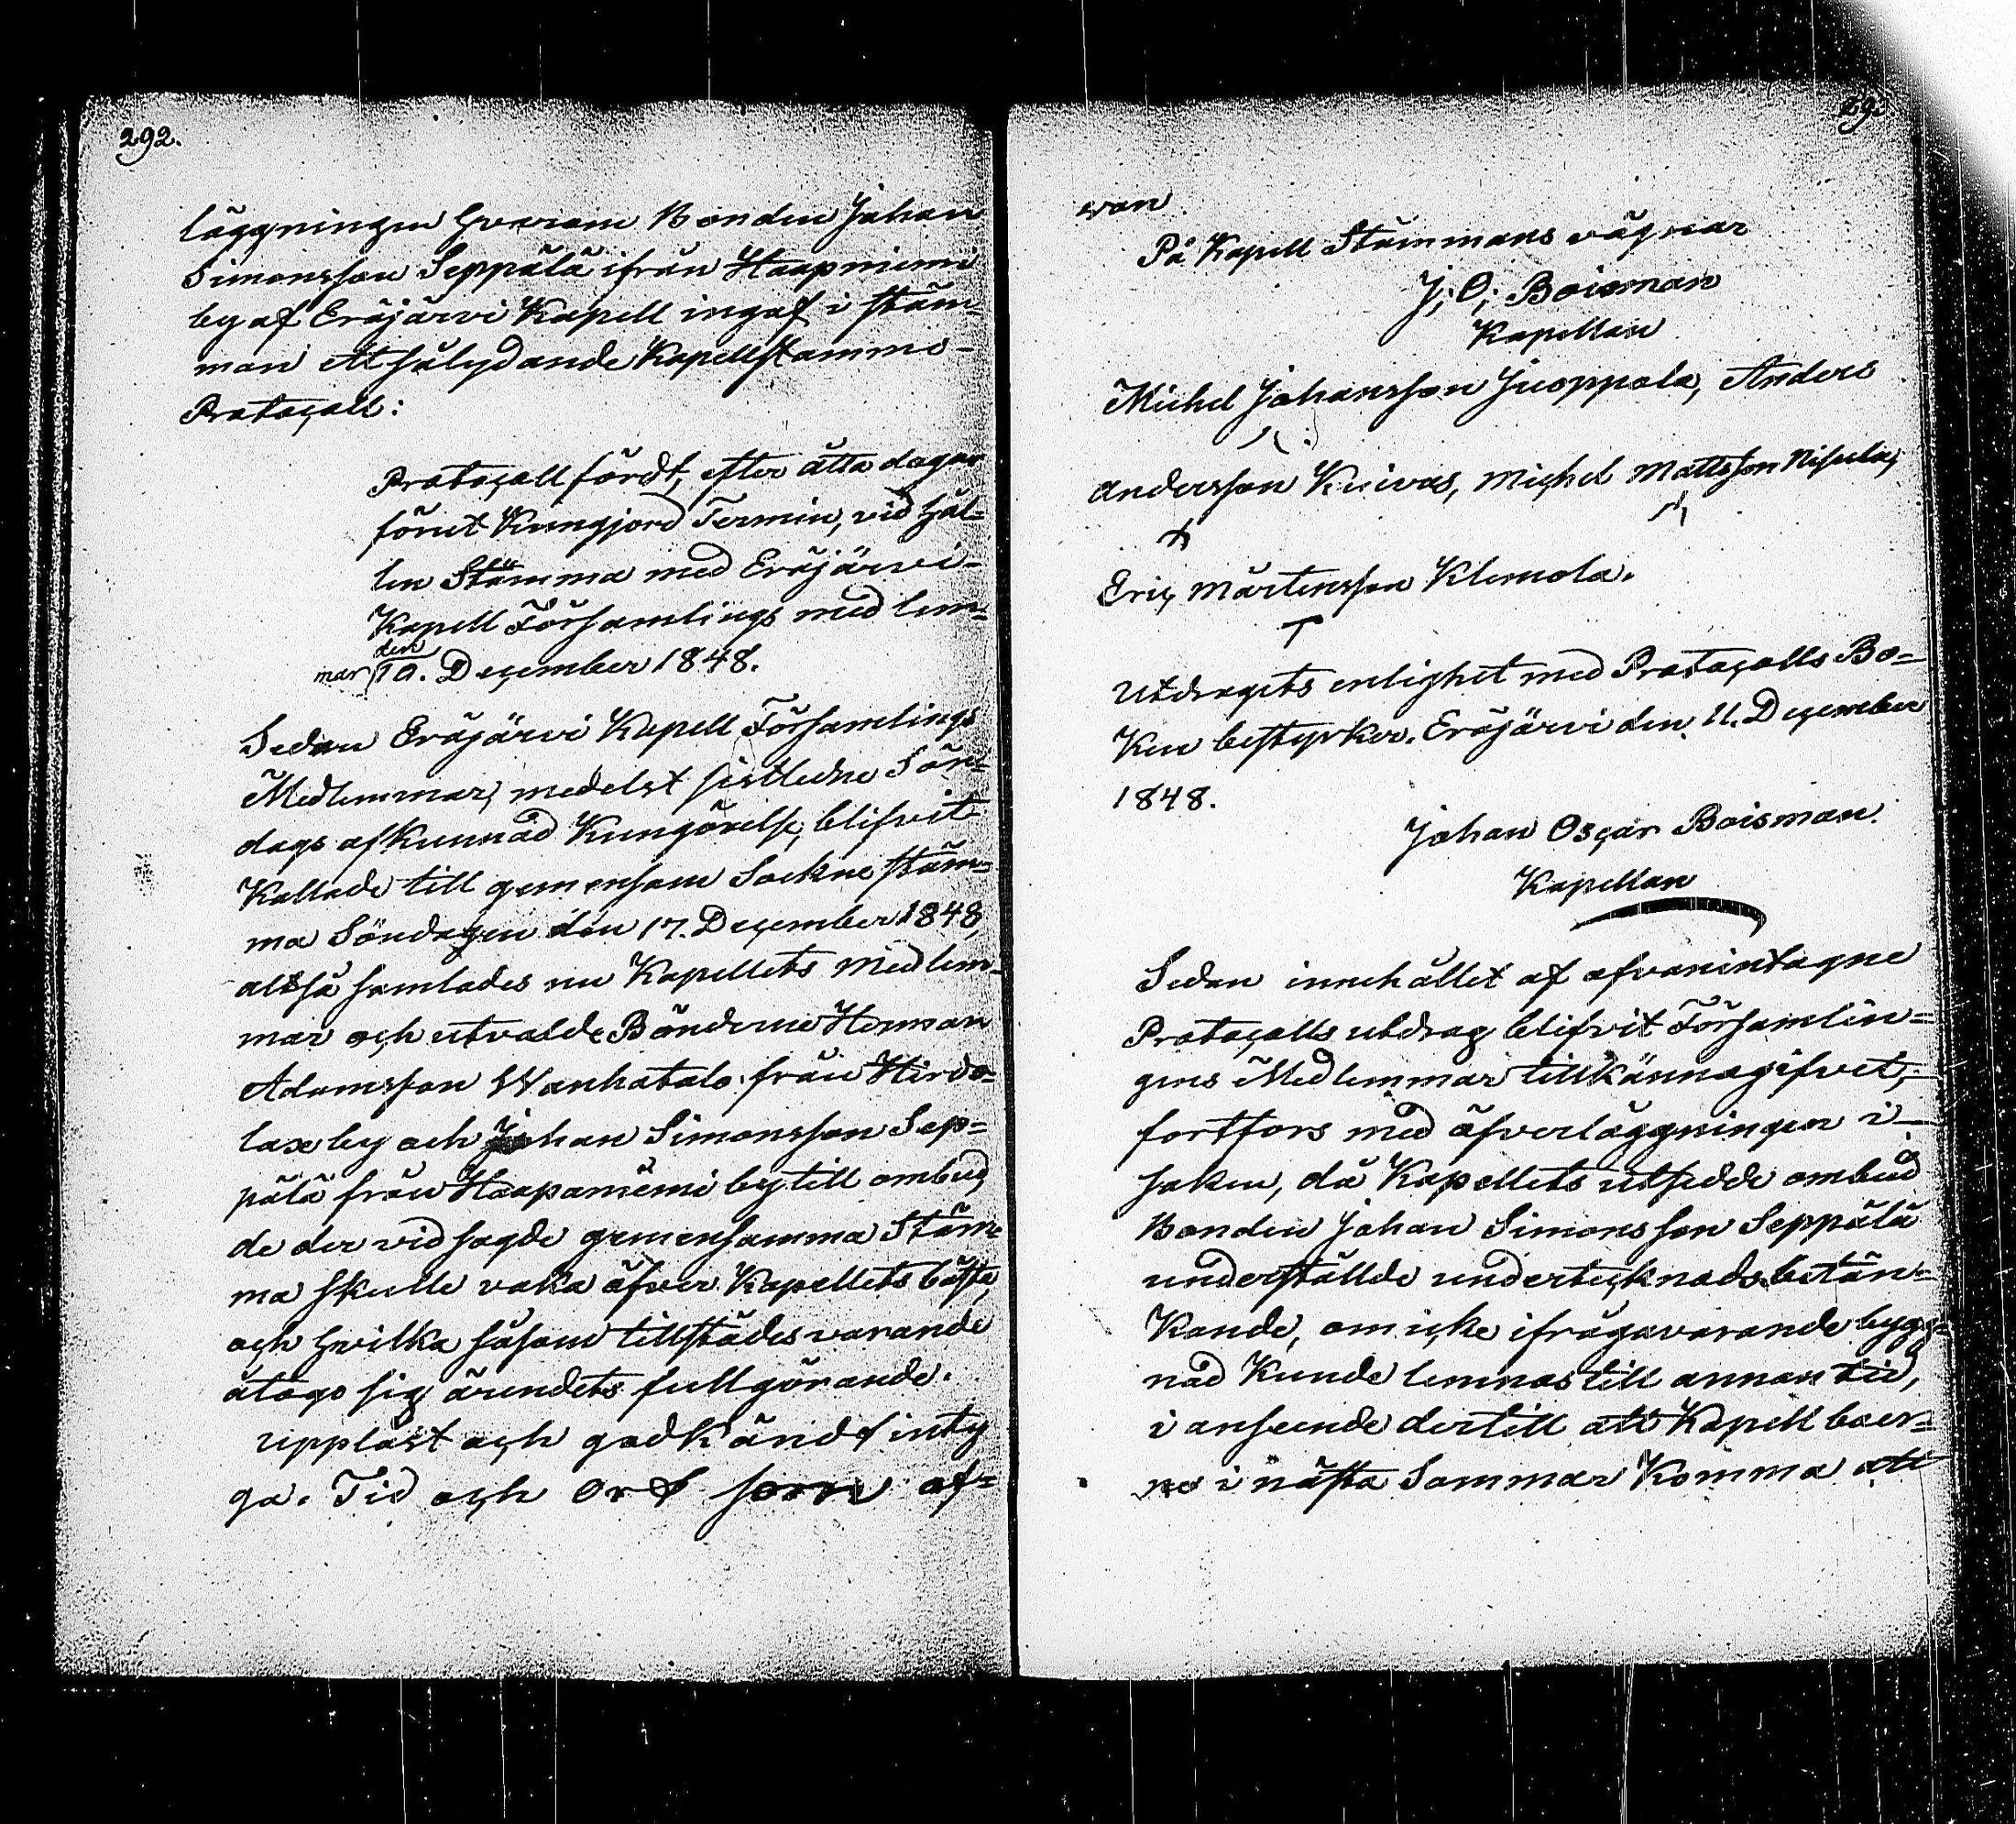 292.
läggningen hvarom Bonden Johan
Simonsson Seppälä ifrån Haapniemi
by af Eräjärvi Kapell ingaf i stäm-
man ett sålydande Kapellstämmo-
Protocoll:
Protocoll fördt, efter åtta dagar
förut Kungjord Termin, vid hål-
len Stämma med Eräjärvi-
Kapell Församlings med lem-
den
mar 10. December 1848.
Sedan Eräjärvi Kapell Församlings
Medlemmar, medelst sistledne Sön-
dags afkunnad Kungörelse, blifvit
Kallade till gemensam Sockne stäm-
ma Söndagen den 17. December 1848,
altså samlades nu Kapellets Medlem-
mar och utvalde Bönderne Herman
Adamsson Wanhatalo från Hirvo-
lax by och Johan Simonsson Sep-
pälä från Haapaniemi by till ombud,
de der vid sagde gemensamma Stäm-
ma skulle vaka öfver Kapellets bästa,
och hvilka såsom tillstädes varande
åtogo sig ärendets fullgörande.
Uppläst och godkändt inty
ga. Tid och Ort som of-
293.
van
På Kapell Stämmans vägnar
J. O. Boisman
Kapellan
Michel Johansson Juoppala, Anders
Andersson Kuivas, Michel Mattsson Nisula,
Eric Mårtensson Klemola.
Utdragets enlighet med Protocolls Bo-
Ken bestyrker. Eräjärvi den 11. December
1848.
Johan Oscar Boisman.
Kapellan
Sedan innehållet af ofvanintagne
Protocolls utdrag blifvit Församlin-
gens Medlemmar tillkännagifvet,
fortfors med öfverläggningen i
saken, då Kapellets utsedde ombud
Bonden Johan Simonsson Seppälä
underställde undertecknads betän-
Kande, om icke ifrågavarande bygg-
nad Kunde lemnas till annan tid,
i anseende dertill att Kapell boer-
ne i nästa Sommar Komma att